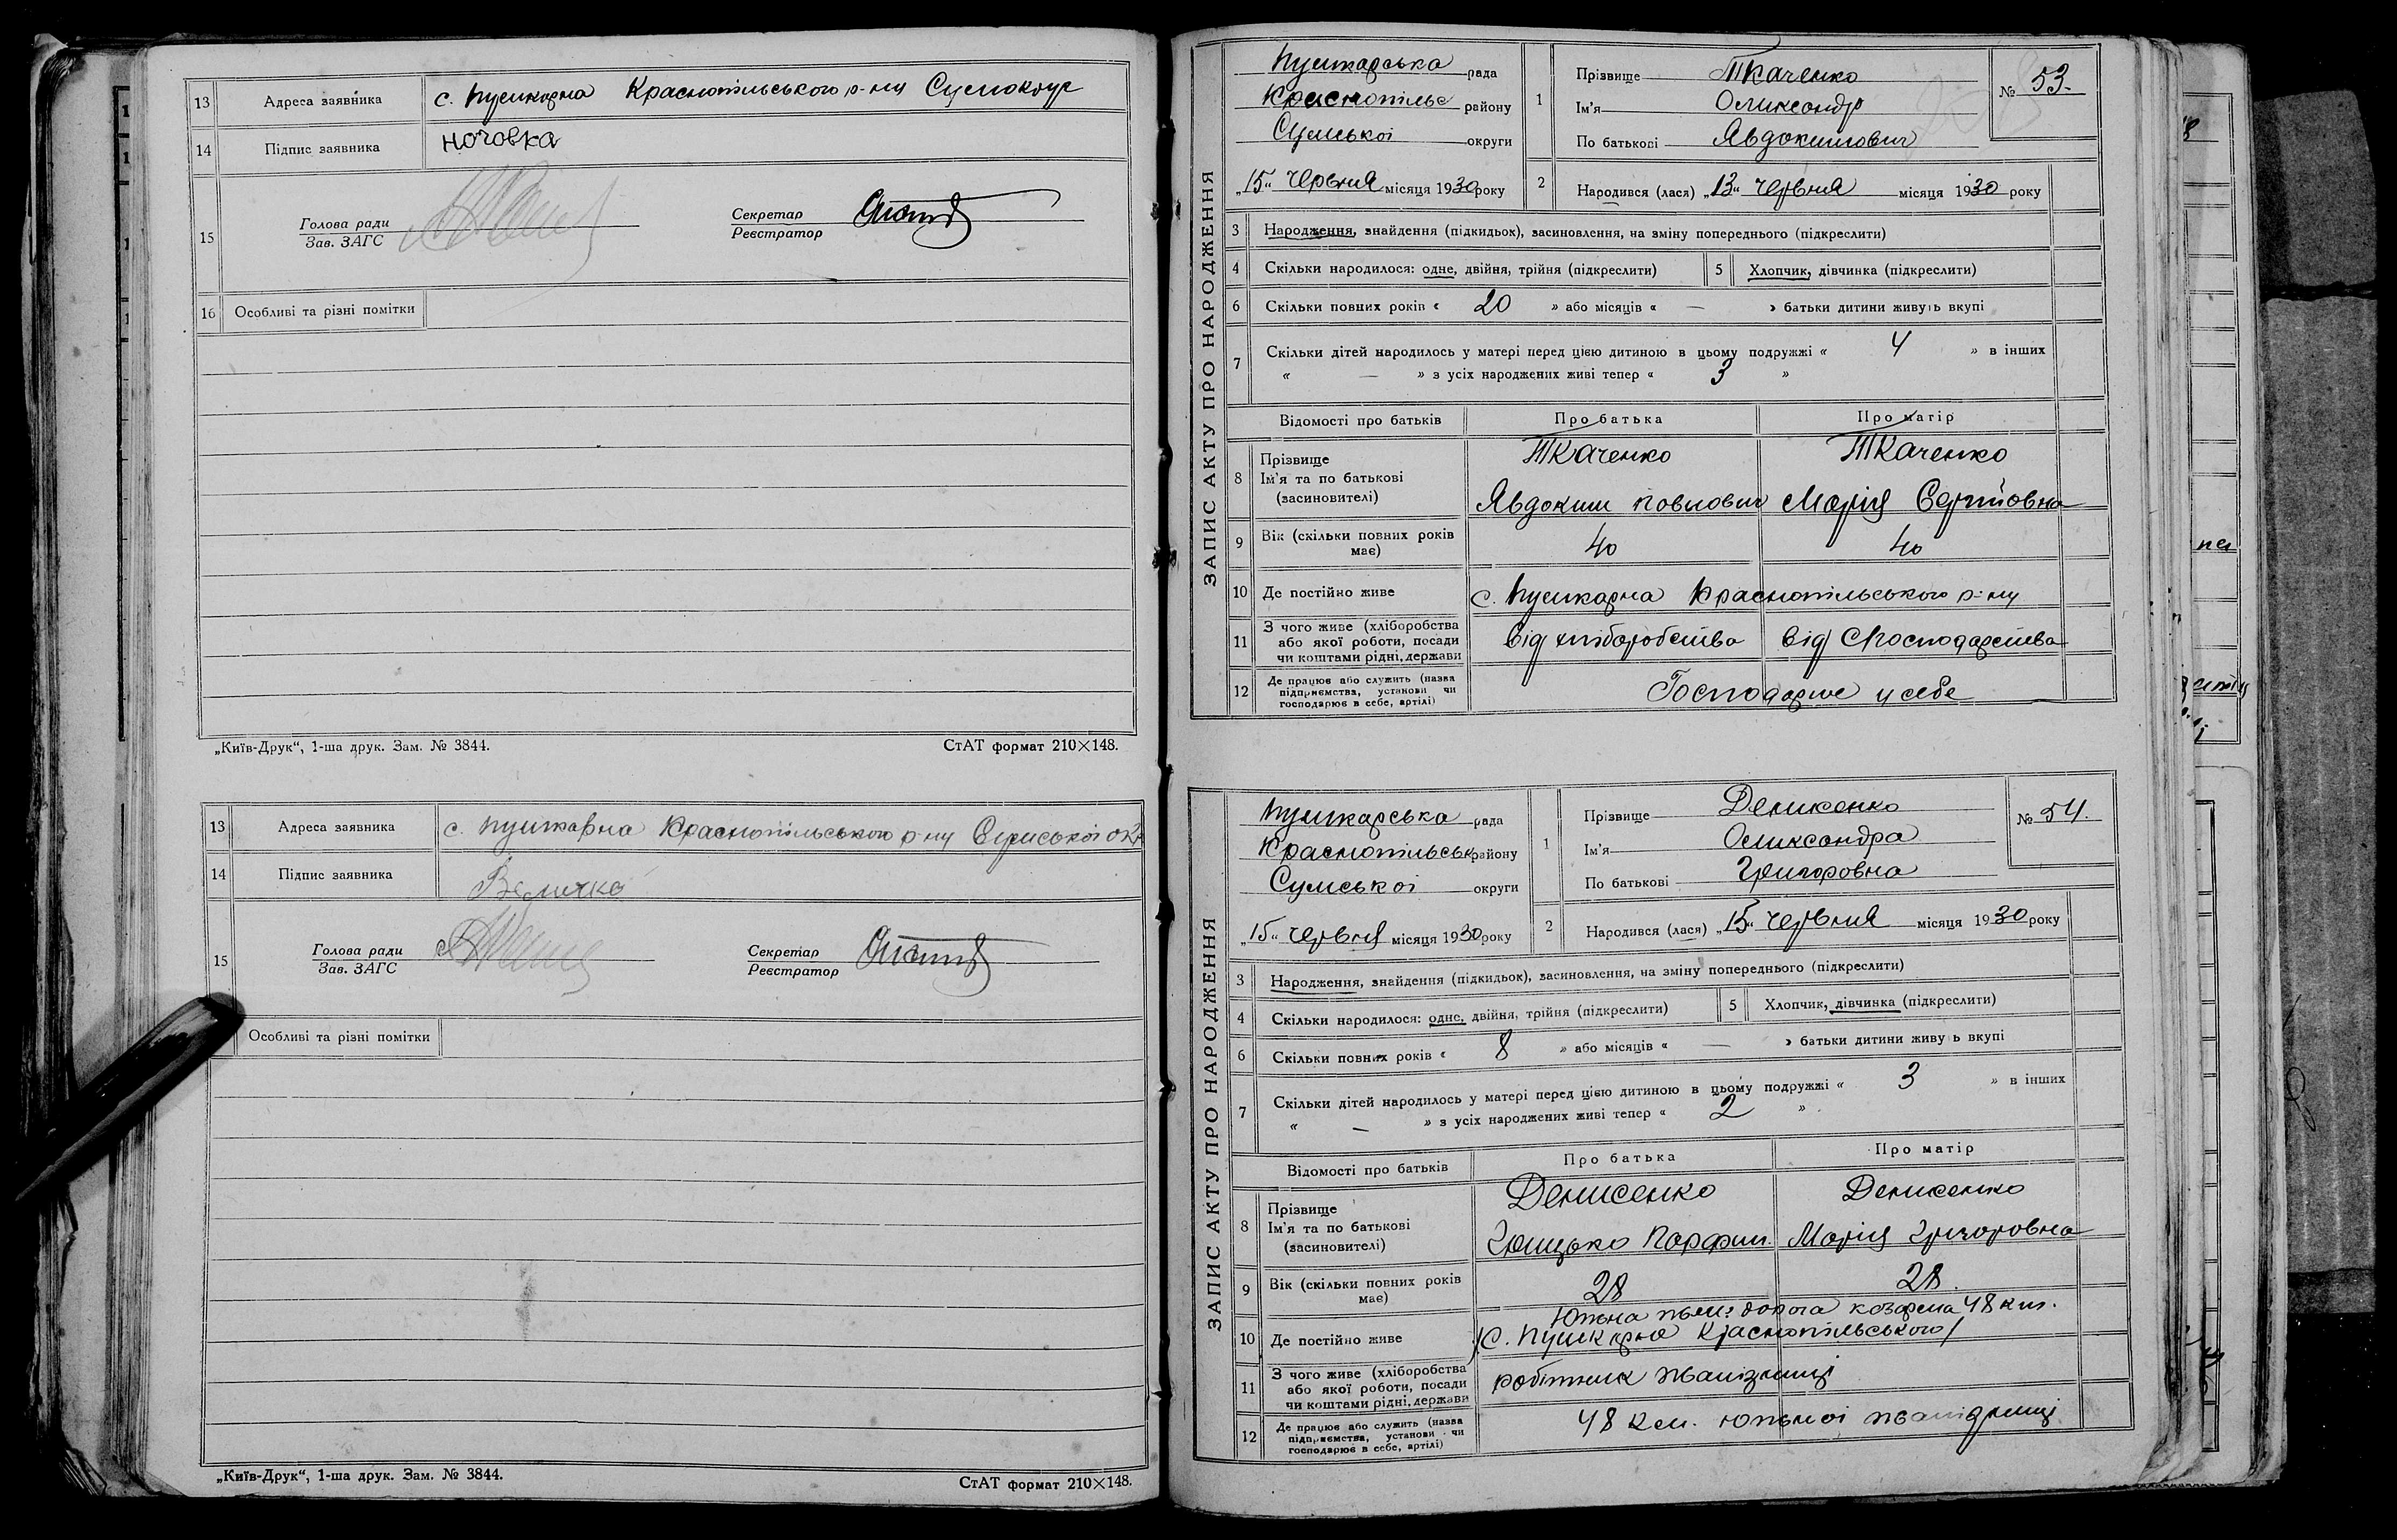 13 Адреса заявника с. Пушкарна Краснопільського р-ну Сумокруг
14 Підпис заявника ночовка
15 Голова ради
Зав. ЗАГС
Секретар
Реєстратор
16 Особливі та різні помітки
„Київ-Друк“, 1-ша друк. Зам. № 3844. СтАТ формат 210×148.
13 Адреса заявника с. Пушкарна Краснопільського р-ну Сумської окр
14 Підпис заявника Величко
15 Голова ради
Зав. ЗАГС
Секретар
Реєстратор
Особливі та різні помітки
„Київ-Друк“, 1-ша друк. Зам. № 3844. СтАТ формат 210×148.
ЗАПИС АКТУ ПРО НАРОДЖЕННЯ
Пушкарська рада
Краснопільс району
Сумської округи
„15“ червня місяця 1930 року
1 Прізвище Ткаченко
Ім'я Олександр
По батькові Явдокимович
№ 53.
2 Народився (лася) „13“ червня місяця 1930 року
3 Народження, знайдення (підкидьок), засиновлення, на зміну попереднього (підкреслити)
4 Скільки народилося: одне, двійня, трійня (підкреслити) 5 Хлопчик, дівчинка (підкреслити)
6 Скільки повних років « 20 » або місяців « — » батьки дитини живуть вкупі
7 Скільки дітей народилось у матері перед цією дитиною в цьому подружжі « 4 » в інших
« — » з усіх народжених живі тепер « 3 »
Відомості про батьків Про батька Про матір
8 Прізвище
Ім'я та по батькові
(засиновителі)
Ткаченко Ткаченко
Явдоким Павлович Марія Сергіївна
9 Вік (скільки повних років має) 40 40
10 Де постійно живе с. Пушкарна Краснопільського р-ну
11 З чого живе (хліборобства
або якої роботи, посади
чи коштами рідні, держави
від хліборобства від господарства
12 Де працює або служить (назва
підприємства, установи чи
господарює в себе, артілі)
Господарює у себе
ЗАПИС АКТУ ПРО НАРОДЖЕННЯ
Пушкарська рада
Краснопільськ району
Сумської округи
„15“ червня місяця 1930 року
1 Прізвище Денисенко
Ім'я Олександра
По батькові Григоровна
№ 54.
2 Народився (лася) „15“ червня місяця 1930 року
3 Народження, знайдення (підкидьок), засиновлення, на зміну попереднього (підкреслити)
4 Скільки народилося: одне, двійня, трійня (підкреслити) 5 Хлопчик, дівчинка (підкреслити)
6 Скільки повних років « 8 » або місяців « — » батьки дитини живуть вкупі
7 Скільки дітей народилось у матері перед цією дитиною в цьому подружжі « 3 » в інших
« — » з усіх народжених живі тепер « 2 »
Відомості про батьків Про батька Про матір
8 Прізвище
Ім'я та по батькові
(засиновителі)
Денисенко Денисенко
Грицько Парфим. Марія Григоровна
9 Вік (скільки повних років має) 28 28.
10 Де постійно живе
дорога казарма 48 км.
/С. Пушкарна Краснопільського/
11 З чого живе (хліборобства
або якої роботи, посади
чи коштами рідні, держави
робітник
12 Де працює або служить (назва
підприємства, установи чи
господарює в себе, артілі)
48 км.